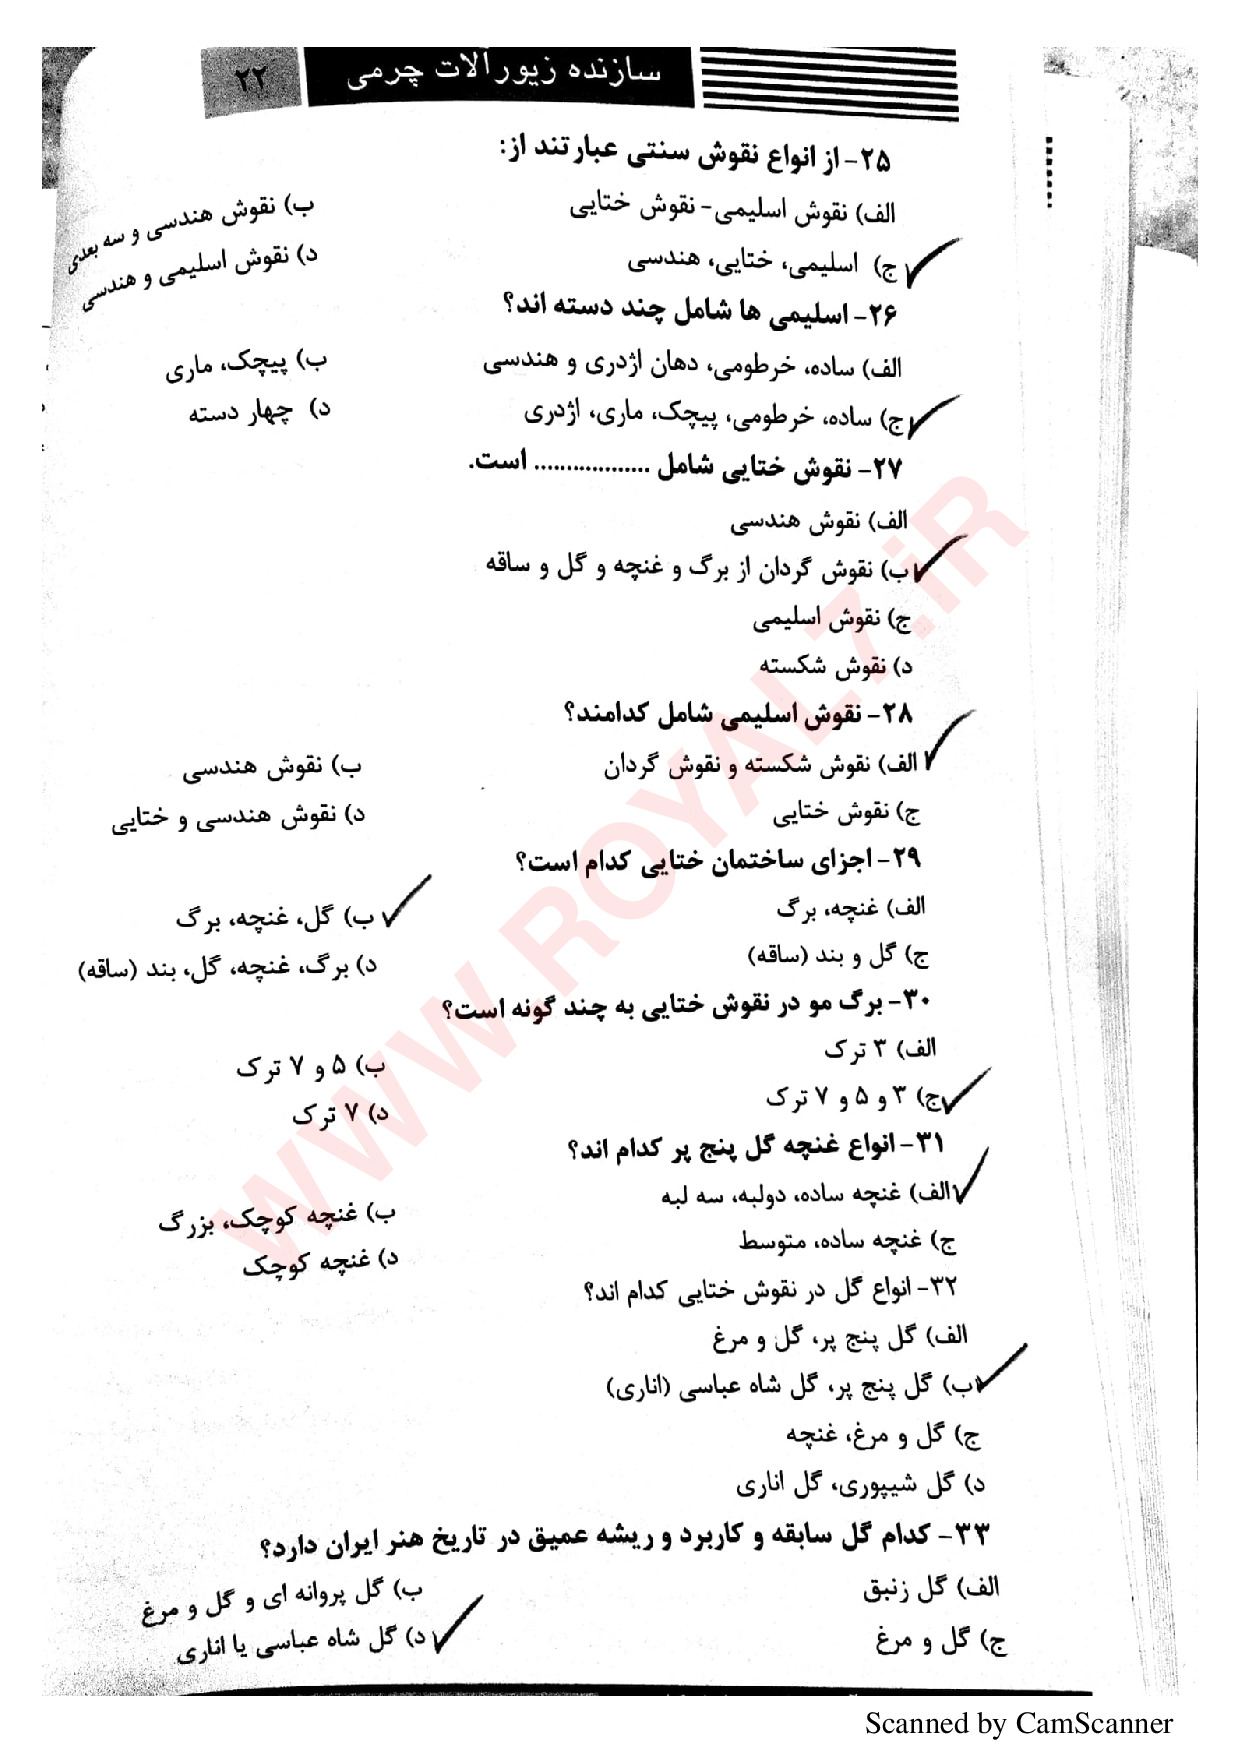 سازنده زیورآلات چرمی ۲۲
۲۵- از انواع نقوش سنتی عبارتند از:
الف) نقوش اسلیمی- نقوش ختایی ب) نقوش هندسی و سه بعدی
ج) اسلیمی، ختایی، هندسی د) نقوش اسلیمی و هندسی
۲۶- اسلیمی ها شامل چند دسته اند؟
الف) ساده، خرطومی، دهان اژدری و هندسی ب) پیچک، ماری
ج) ساده، خرطومی، پیچک، ماری، اژدری د) چهار دسته
۲۷- نقوش ختایی شامل .................. است.
الف) نقوش هندسی
ب) نقوش گردان از برگ و غنچه و گل و ساقه
ج) نقوش اسلیمی
د) نقوش شکسته
۲۸- نقوش اسلیمی شامل کدامند؟
الف) نقوش شکسته و نقوش گردان ب) نقوش هندسی
ج) نقوش ختایی د) نقوش هندسی و ختایی
۲۹- اجزای ساختمان ختایی کدام است؟
الف) غنچه، برگ ب) گل، غنچه، برگ
ج) گل و بند (ساقه) د) برگ، غنچه، گل، بند (ساقه)
۳۰- برگ مو در نقوش ختایی به چند گونه است؟
الف) ۳ ترک ب) ۵ و ۷ ترک
ج) ۳ و ۵ و ۷ ترک د) ۷ ترک
۳۱- انواع غنچه گل پنج پر کدام اند؟
الف) غنچه ساده، دولبه، سه لبه ب) غنچه کوچک، بزرگ
ج) غنچه ساده، متوسط د) غنچه کوچک
۳۲- انواع گل در نقوش ختایی کدام اند؟
الف) گل پنج پر، گل و مرغ
ب) گل پنج پر، گل شاه عباسی (اناری)
ج) گل و مرغ، غنچه
د) گل شیپوری، گل اناری
۳۳- کدام گل سابقه و کاربرد و ریشه عمیق در تاریخ هنر ایران دارد؟
الف) گل زنبق ب) گل پروانه ای و گل و مرغ
ج) گل و مرغ د) گل شاه عباسی یا اناری
WWW.ROYAL7.iR
Scanned by CamScanner